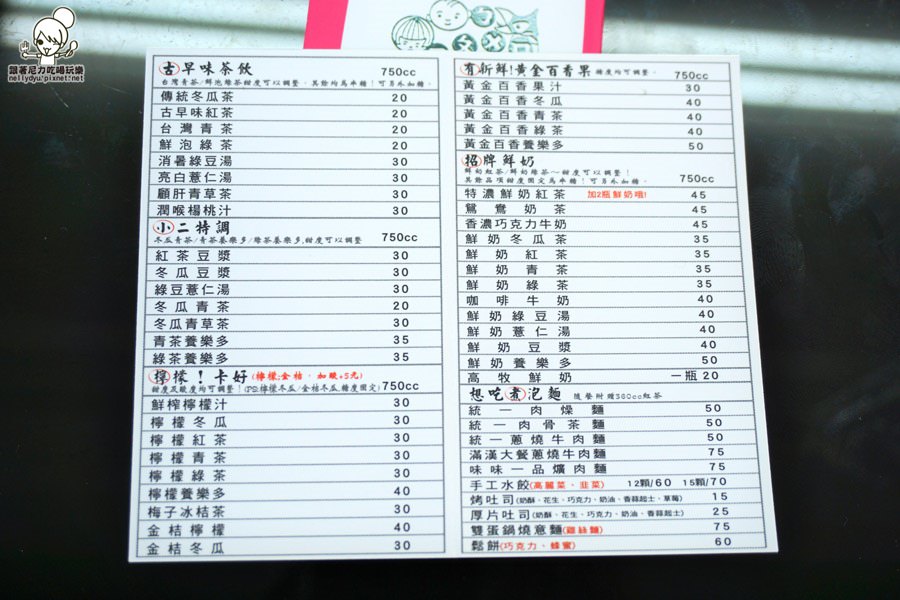 跟著尼力吃喝玩樂
nellydyu.pixnet.net
古早味茶飲 750cc
台灣青茶、鮮泡綠茶甜度可以調整，其餘均為半糖！可另外加糖。
傳統冬瓜茶 20
古早味紅茶 20
台灣青茶 20
鮮泡綠茶 20
消暑綠豆湯 30
亮白薏仁湯 30
顧肝青草茶 30
潤喉楊桃汁 30
小二特調 750cc
冬瓜青茶/青茶養樂多/綠茶養樂多,甜度可以調整
紅茶豆漿 30
冬瓜豆漿 30
綠豆薏仁湯 30
冬瓜青茶 20
冬瓜青草茶 30
青茶養樂多 35
綠茶養樂多 35
檸檬！卡好(檸檬;金桔，加酸+5元)
甜度及酸度均可調整！(PS:檸檬冬瓜/金桔冬瓜糖度固定) 750cc
鮮榨檸檬汁 30
檸檬冬瓜 30
檸檬紅茶 30
檸檬青茶 30
檸檬綠茶 30
檸檬養樂多 40
梅子冰桔茶 30
金桔檸檬 40
金桔冬瓜 30
有新鮮!黃金百香果 糖度均可調整。 750cc
黃金百香果汁 30
黃金百香冬瓜 40
黃金百香青茶 40
黃金百香綠茶 40
黃金百香養樂多 50
招牌鮮奶 750cc
鮮奶紅茶/鮮奶綠茶～甜度可以調整！
其餘品項甜度固定為半糖！可另外加糖。
特濃鮮奶紅茶 加2瓶鮮奶哦! 45
鴛鴦奶茶 45
香濃巧克力牛奶 45
鮮奶冬瓜茶 35
鮮奶紅茶 35
鮮奶青茶 35
鮮奶綠茶 35
咖啡牛奶 40
鮮奶綠豆湯 40
鮮奶薏仁湯 40
鮮奶豆漿 40
鮮奶養樂多 50
高牧鮮奶 一瓶20
想吃煮泡麵 隨餐附贈360cc紅茶
統一肉燥麵 50
統一肉骨茶麵 50
統一蔥燒牛肉麵 50
滿漢大餐蔥燒牛肉麵 75
味味一品爌肉麵 75
手工水餃(高麗菜、韭菜) 12顆/60 15顆/70
烤吐司(奶酥、花生、巧克力、奶油、香蒜起士、草莓) 15
厚片吐司(奶酥、花生、巧克力、奶油、香蒜起士) 25
雙蛋鍋燒意麵(雞絲麵) 75
鬆餅(巧克力、蜂蜜) 60